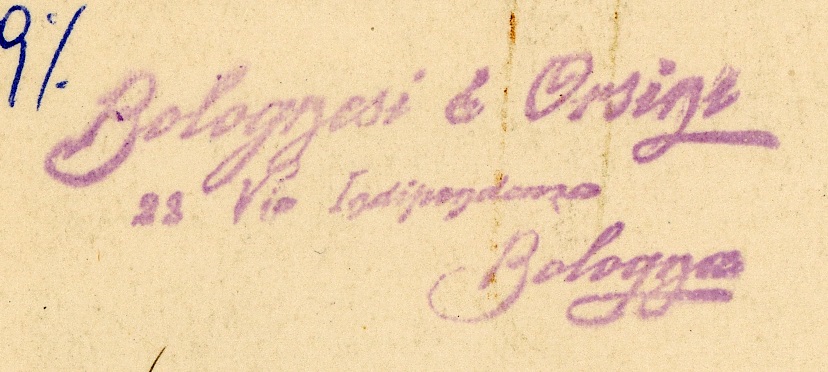 9%
Bolognesi & Orsini
22 Via Indipendenza
Bologna